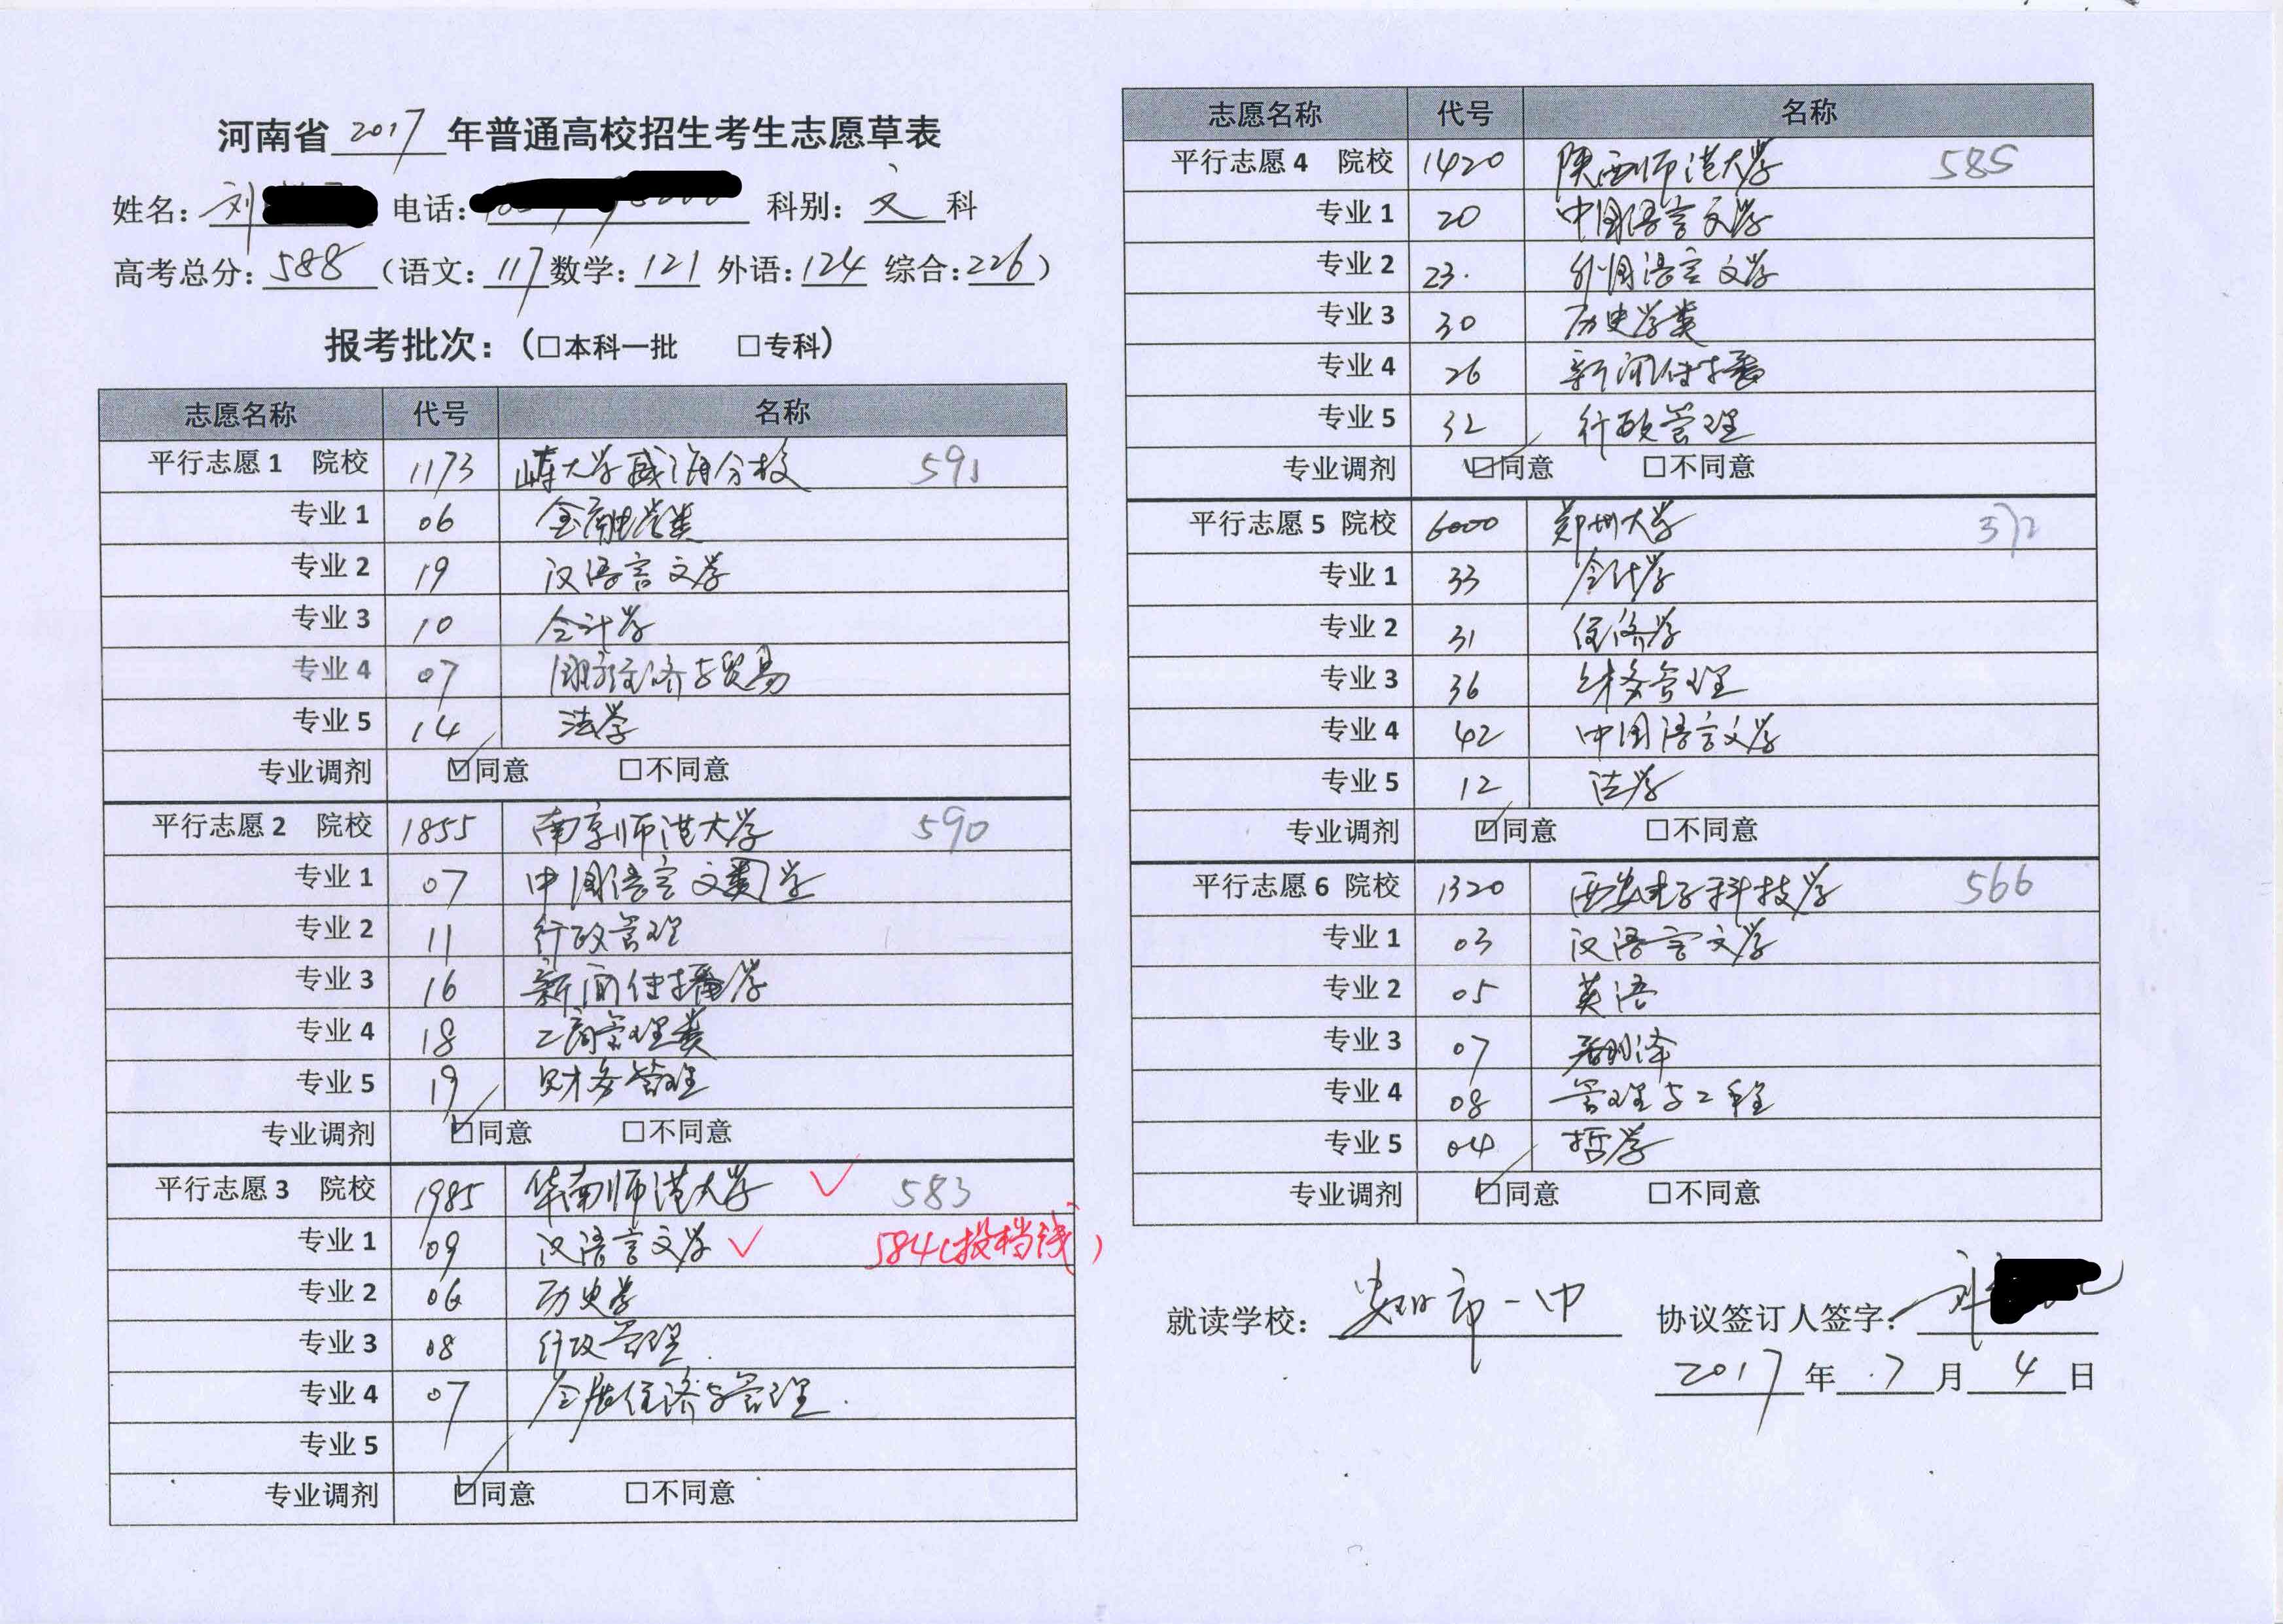 河南省 2017 年普通高校招生考生志愿草表
姓名: 刘 电话: 科别: 文 科
高考总分: 588 (语文: 117 数学: 121 外语: 124 综合: 226)
报考批次: (□本科一批 □专科)
志愿名称 代号 名称
平行志愿1 院校 1173 山东大学威海分校 591
专业1 06 金融学类
专业2 19 汉语言文学
专业3 10 会计学
专业4 07 国际经济与贸易
专业5 14 法学
专业调剂 ☑同意 □不同意
平行志愿2 院校 1855 南京师范大学 590
专业1 07 中国语言文学
专业2 11 行政管理
专业3 16 新闻传播学
专业4 18 工商管理类
专业5 19 财务管理
专业调剂 ☑同意 □不同意
平行志愿3 院校 1985 华南师范大学 ✓ 583
专业1 09 汉语言文学 ✓ 584(投档线)
专业2 06 历史学
专业3 08 行政管理
专业4 07 会展经济与管理
专业5
专业调剂 ☑同意 □不同意
志愿名称 代号 名称
平行志愿4 院校 1420 陕西师范大学 585
专业1 20 中国语言文学
专业2 23. 外国语言文学
专业3 30 历史学类
专业4 26 新闻传播
专业5 32 行政管理
专业调剂 ☑同意 □不同意
平行志愿5 院校 6000 郑州大学 572
专业1 33 会计学
专业2 31 经济学
专业3 36 财务管理
专业4 42 中国语言文学
专业5 12 法学
专业调剂 ☑同意 □不同意
平行志愿6 院校 1320 西安电子科技大学 566
专业1 03 汉语言文学
专业2 05 英语
专业3 07 翻译
专业4 08 管理与工程
专业5 04 哲学
专业调剂 ☑同意 □不同意
就读学校: 市一中 协议签订人签字:
2017 年 7 月 4 日